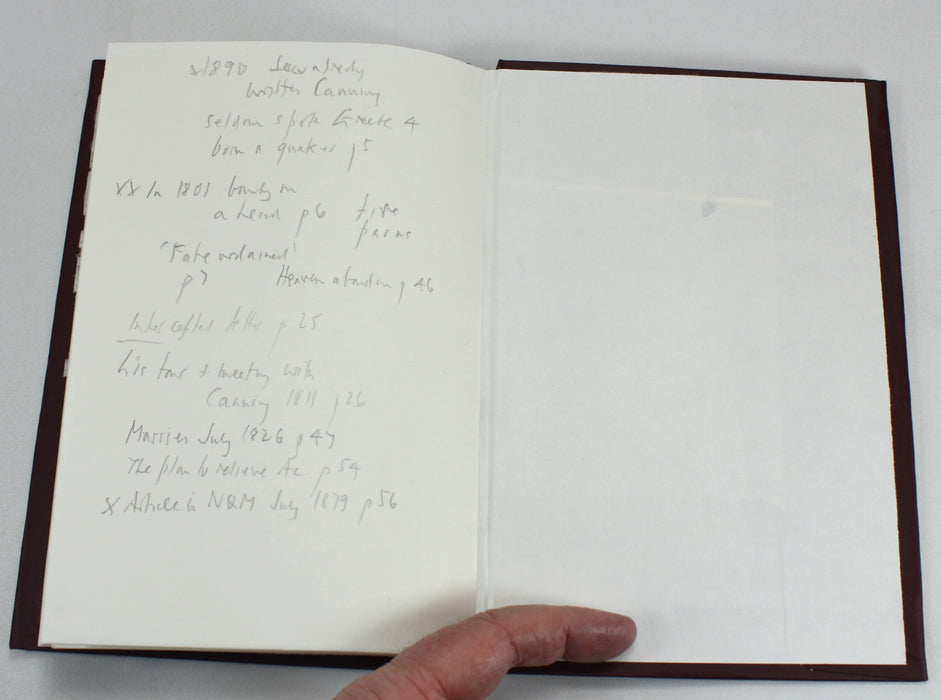 x 1890
Canning
seldom spoke Greek 4
born a quaker p5
xx In 1801 bounty on
a head p6 five
paras
'Fate ordained'
p7 Heaven abandon p 46
Intercepted letter p 25
his tour + meeting with
Canning 1811 p26
Marries July 1826 p 47
The plan to relieve Ac p 54
x Article in NQM July 1879 p56